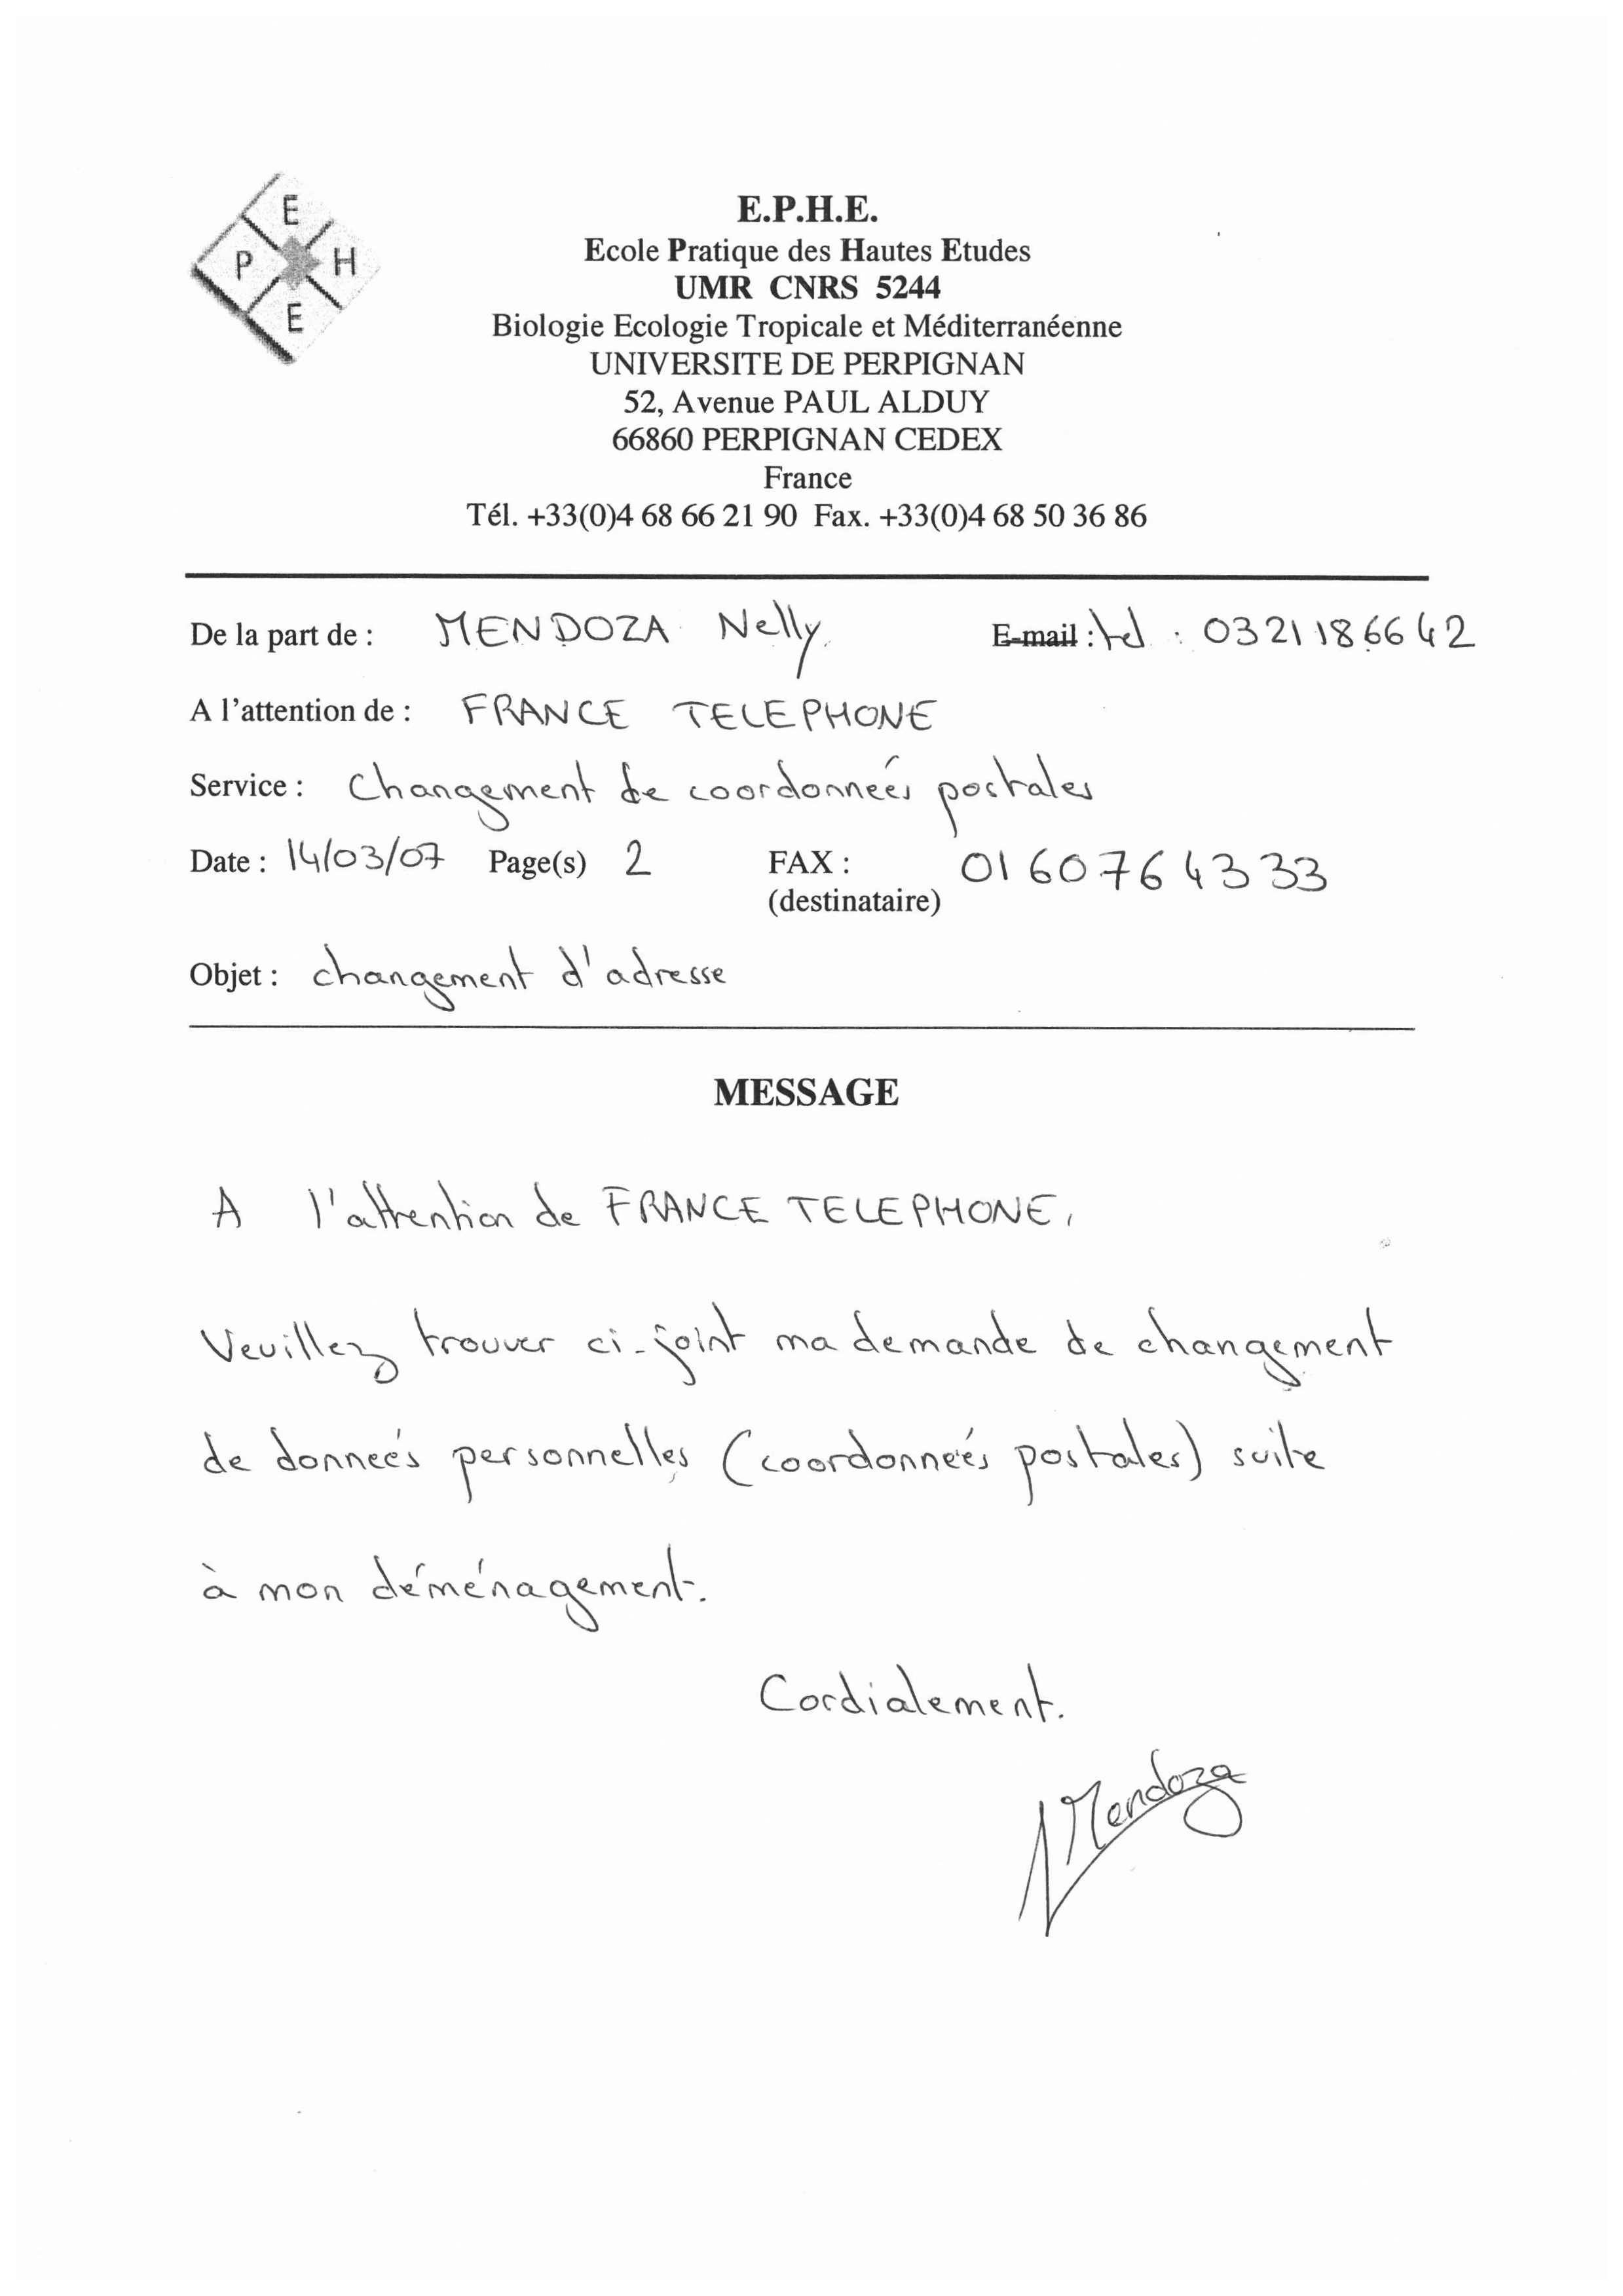 E
P H
E
E.P.H.E.
Ecole Pratique des Hautes Etudes
UMR CNRS 5244
Biologie Ecologie Tropicale et Méditerranéenne
UNIVERSITE DE PERPIGNAN
52, Avenue PAUL ALDUY
66860 PERPIGNAN CEDEX
France
Tél. +33(0)4 68 66 21 90 Fax. +33(0)4 68 50 36 86
De la part de : MENDOZA Nelly E-mail : tel : 0321186642
A l'attention de : FRANCE TELEPHONE
Service : Changement de coordonnées postales
Date : 14/03/07 Page(s) 2 FAX : 0160764333
(destinataire)
Objet : changement d'adresse
MESSAGE
A l'attention de FRANCE TELEPHONE,
Veuillez trouver ci-joint ma demande de changement
de données personnelles (coordonnées postales) suite
à mon déménagement.
Cordialement.
NMendoza